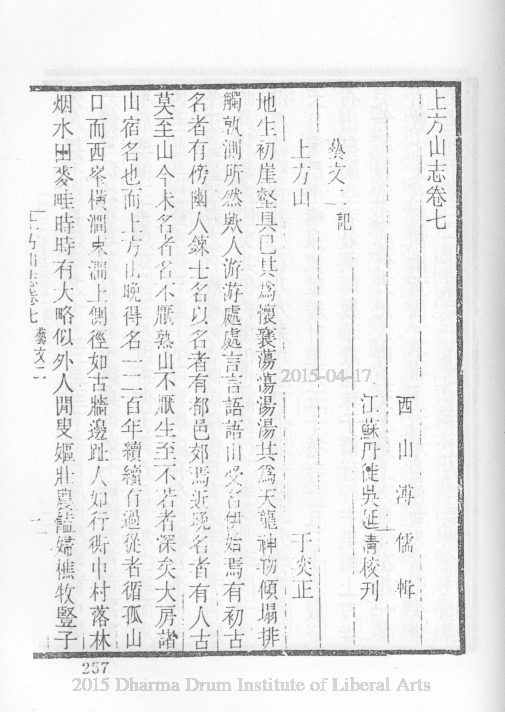 上方山志卷七
西山溥儒輯
江蘇丹徒吳延清校刊
藝文二記
上方山
于奕正
地生初崖壑具已其為懷襄蕩蕩湯湯其為天龍神物傾塌排
觸孰測所然歟人游游處處言言語語山受名伊始焉有初古
名者有傍幽人鍊士名以名者有都邑郊焉近晚名者有人古
莫至山今未名者名不厭熟山不厭生至不若者深矣大房諸
山宿名也而上方山晚得名一二百年續續有過從者循孤山
口而西峯橫澗束澗上側徑如古牆邊趾人如行衖中村落林
烟水田麥畦時時有大略似外人閒叟嫗壯農饁婦樵牧豎子
上方山志卷七 藝文二
一
2015-04-17
257
2015 Dharma Drum Institute of Liberal Arts